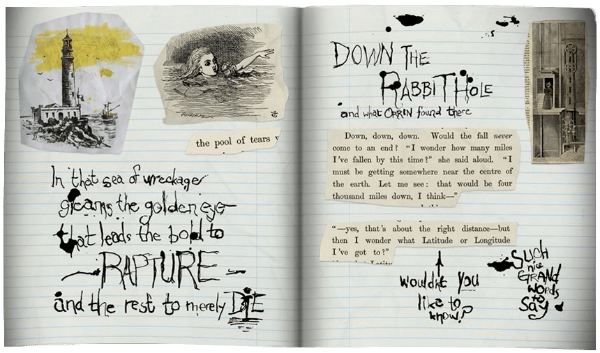 the pool of tears
In that sea of wreckage
gleams the golden eye
that leads the bold to
RAPTURE
and the rest to merely DIE
DOWN THE
RABBIT HOLE
and what ORRIN found there
Down, down, down. Would the fall never
come to an end? “I wonder how many miles
I've fallen by this time?” she said aloud. “I
must be getting somewhere near the centre of
the earth. Let me see: that would be four
thousand miles down, I think—”
“—yes, that's about the right distance—but
then I wonder what Latitude or Longitude
I've got to?”
wouldn't You
like to
know?
SUCH
nice
GRAND
words
to
SAY